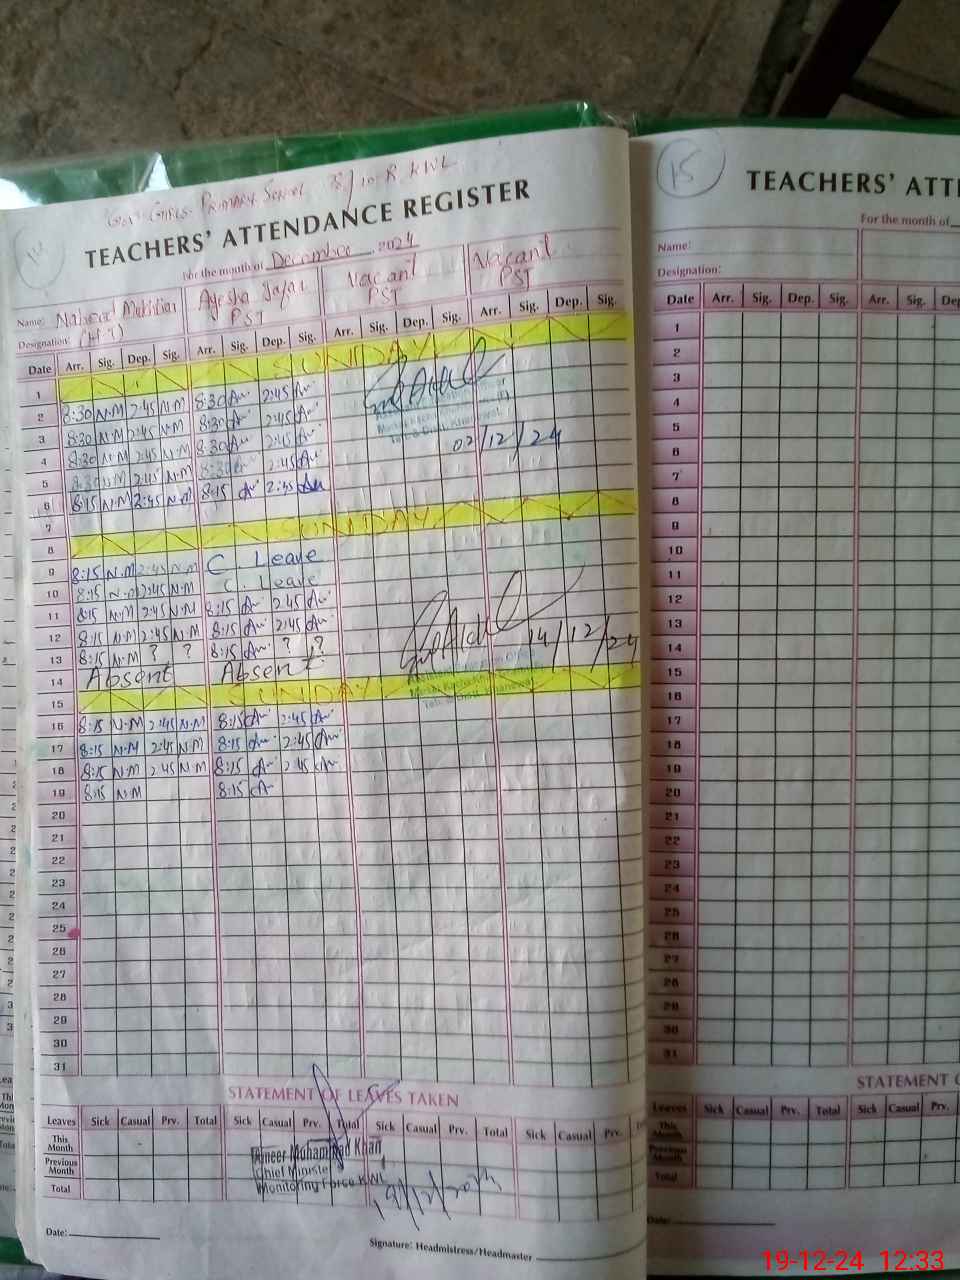 Govt Girls Primary School 8/10-R KWL
TEACHERS' ATTENDANCE REGISTER
For the month of December 2024
Name: Naheed Mukhtiar Ayesha Jafar Vacant Vacant
Designation: (H.T) PST PST PST
Date Arr. Sig. Dep. Sig. Arr. Sig. Dep. Sig. Arr. Sig. Dep. Sig. Arr. Sig. Dep. Sig.
1 SUNDAY
2 8:30 N.M 2:45 N.M 8:30 2:45
3 8:30 N.M 2:45 N.M 8:30 2:45
4 8:30 N.M 2:45 N.M 8:30 2:45
02/12/24
5 8:30 N.M 2:45 N.M 8:30 2:45
6 8:15 N.M 2:45 N.M 8:15 2:45
7
8 SUNDAY
9 8:15 N.M 2:45 N.M C. Leave
10 8:15 N.M 2:45 N.M C. Leave
11 8:15 N.M 2:45 N.M 8:15 2:45
12 8:15 N.M 2:45 N.M 8:15 2:45
13 8:15 N.M ? ? 8:15 ? ?
14/12/24
14 Absent Absent
15 SUNDAY
16 8:15 N.M 2:45 N.M 8:15 2:45
17 8:15 N.M 2:45 N.M 8:15 2:45
18 8:15 N.M 2:45 N.M 8:15 2:45
19 8:15 N.M 8:15
20
21
22
23
24
25
26
27
28
29
30
31
STATEMENT OF LEAVES TAKEN
Leaves Sick Casual Prv. Total Sick Casual Prv. Total Sick Casual Prv. Total Sick Casual Prv.
This Month
Previous Month
Total
Ameer Muhammad Khan
Chief Minister
Monitoring Force KWL
19/12/2024
Date:
Signature: Headmistress/Headmaster
15
TEACHERS' ATTE
For the month of
Name:
Designation:
Date Arr. Sig. Dep. Sig. Arr. Sig. Dep
1
2
3
4
5
6
7
8
9
10
11
12
13
14
15
16
17
18
19
20
21
22
23
24
25
26
27
28
29
30
31
STATEMENT O
Leaves Sick Casual Prv. Total Sick Casual Prv.
This Month
Previous Month
Total
Date:
19-12-24 12:33